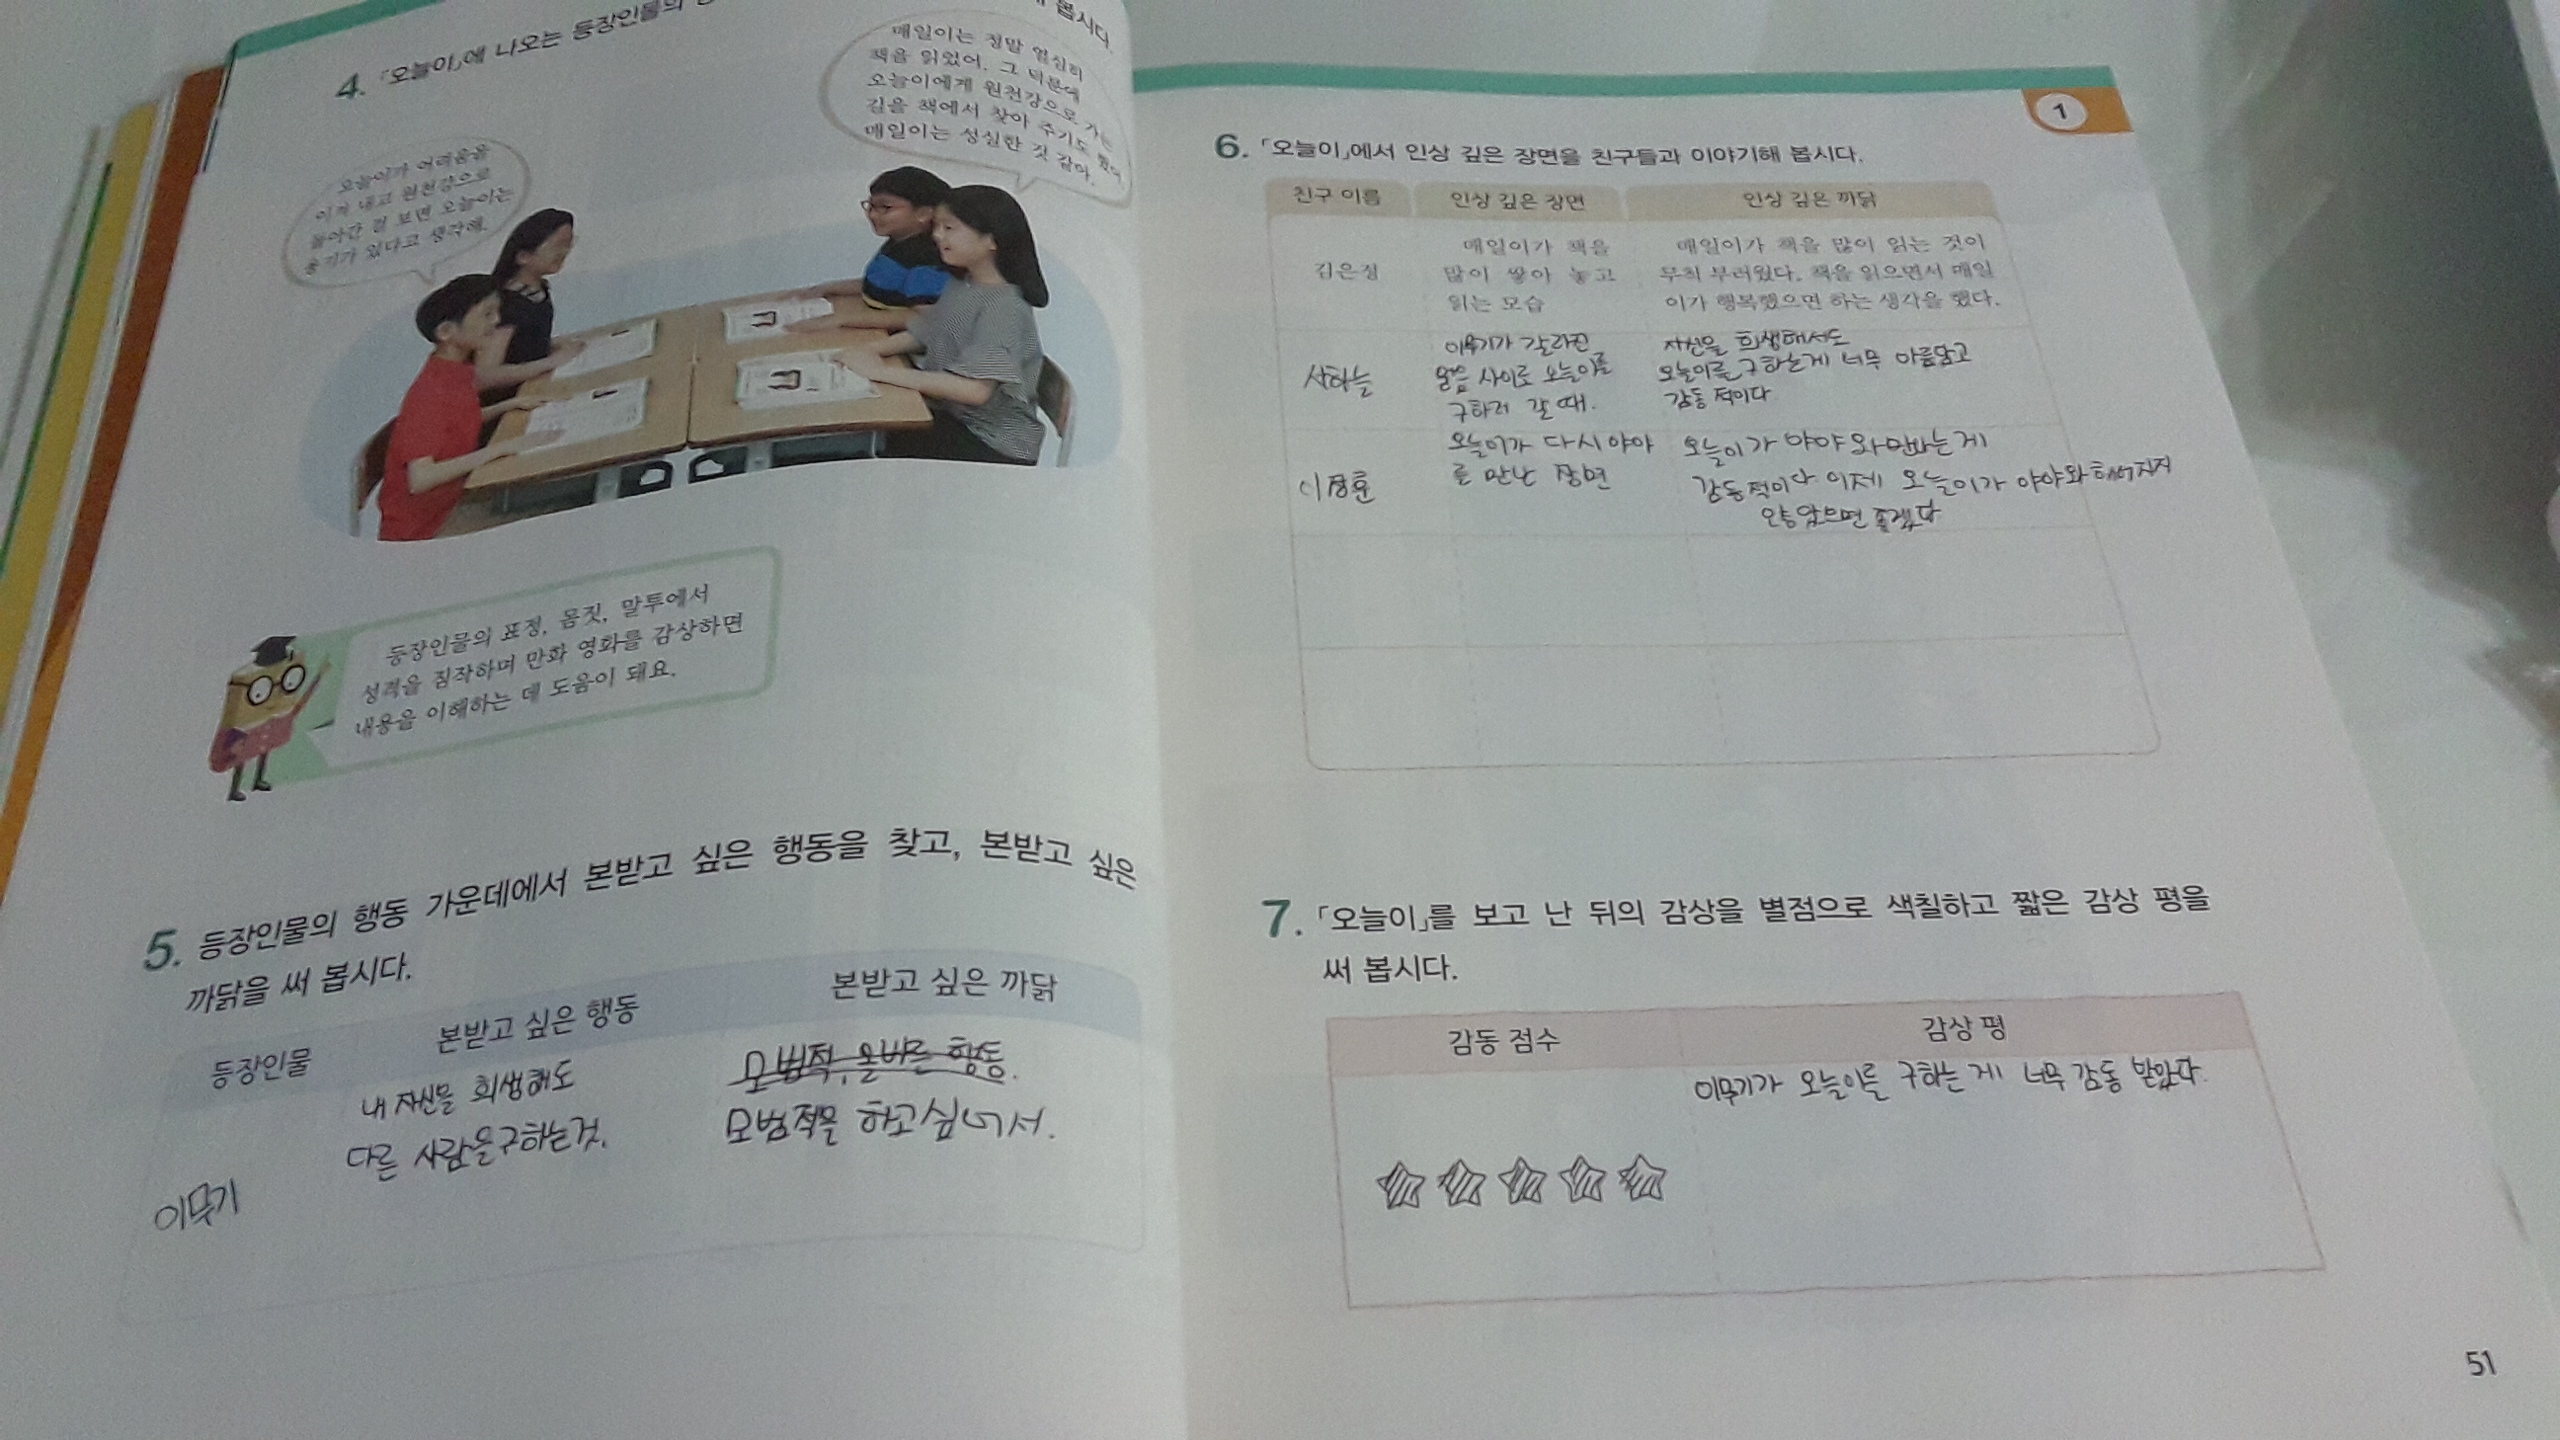 4. 「오늘이」에 나오는 등장인물의
봅시다.
매일이는 정말 열심히
책을 읽었어. 그 덕분에
오늘이에게 원천강으로 가는
길을 책에서 찾아 주기도 했어
매일이는 성실한 것 같아.
오늘이가 어려움을
이겨 내고 원천강으로
돌아간 걸 보면 오늘이는
용기가 있다고 생각해.
등장인물의 표정, 몸짓, 말투에서
성격을 짐작하며 만화 영화를 감상하면
내용을 이해하는 데 도움이 돼요.
5. 등장인물의 행동 가운데에서 본받고 싶은 행동을 찾고, 본받고 싶은
까닭을 써 봅시다.
등장인물 본받고 싶은 행동 본받고 싶은 까닭
이무기
내 자신을 희생해도
다른 사람을구하는것.
모범적, 올바른 행동.
모범적을 하고싶어서.
1
6. 「오늘이」에서 인상 깊은 장면을 친구들과 이야기해 봅시다.
친구 이름 인상 깊은 장면 인상 깊은 까닭
김은정
매일이가 책을
많이 쌓아 놓고
읽는 모습
매일이가 책을 많이 읽는 것이
무척 부러웠다. 책을 읽으면서 매일
이가 행복했으면 하는 생각을 했다.
이무기가 갈라진
얼음 사이로 오늘이를
구하러 갈 때.
자신을 희생해서도
오늘이를 구하는게 너무 아름답고
감동적이다
이정훈
오늘이가 다시 야야
를 만난 장면
오늘이가 야야와만나는게
감동적이다 이제 오늘이가 야야와헤어지지
않았으면 좋겠다
7. 「오늘이」를 보고 난 뒤의 감상을 별점으로 색칠하고 짧은 감상 평을
써 봅시다.
감동 점수 감상 평
이무기가 오늘이를 구하는게 너무 감동 받았다.
51